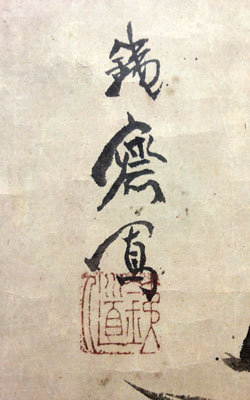 鐵齋寫